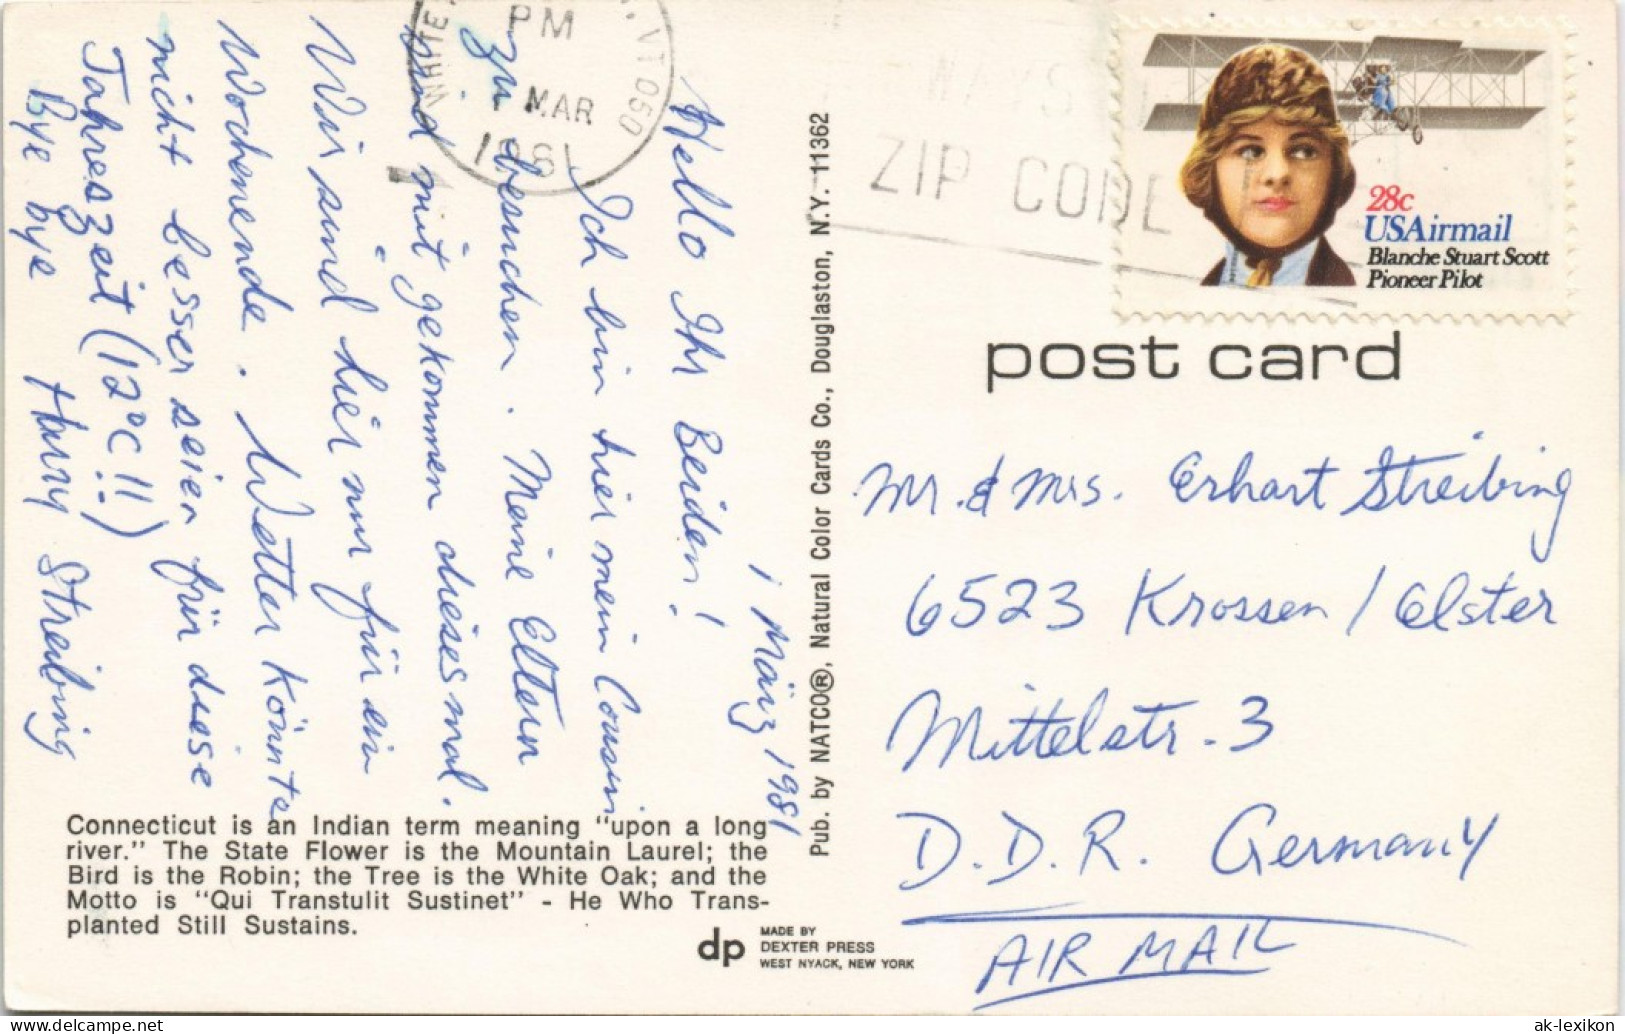 1 März 1981
Hello Ihr Beiden!
Ich bin hier mein Cousin
zu besuchen. Meine Eltern
sind mit gekommen diesesmal.
Wir sind hier nur für ein
Wochenende. Wetter könnte
nicht besser seien für diese
Jahreszeit (12°C!!)
Bye bye Harry Streibing
Connecticut is an Indian term meaning "upon a long
river." The State Flower is the Mountain Laurel; the
Bird is the Robin; the Tree is the White Oak; and the
Motto is "Qui Transtulit Sustinet" - He Who Trans-
planted Still Sustains.
dp
MADE BY
DEXTER PRESS
WEST NYACK, NEW YORK
Pub. by NATCO®, Natural Color Cards Co., Douglaston, N.Y. 11362
WHITE VT 050
PM
MAR
1981
WAYS
ZIP CODE
28c
USAirmail
Blanche Stuart Scott
Pioneer Pilot
post card
Mr. & Mrs. Erhart Streibing
6523 Krossen / Elster
Mittelstr. 3
D.D.R. Germany
AIR MAIL
ak-lexikon.com